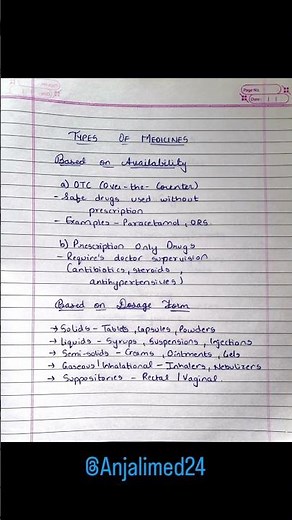 Page No.
Date
TYPES OF MEDICINES
Based on Availability
a) OTC (Over-the-Counter)
- Safe drugs used without
prescription
- Examples - Paracetamol, ORS
b) Prescription Only Drugs
- Require's doctor supervision
(antibiotics, steroids,
antihypertensives)
Based on Dosage Form
→ Solids - Tablets, Capsules, Powders
→ Liquids - Syrups, Suspensions, Injections
→ Semi-solids - Creams, Ointments, Gels
→ Gaseous/Inhalational - Inhalers, Nebulizers
→ Suppositories - Rectal / Vaginal
@Anjalimed24